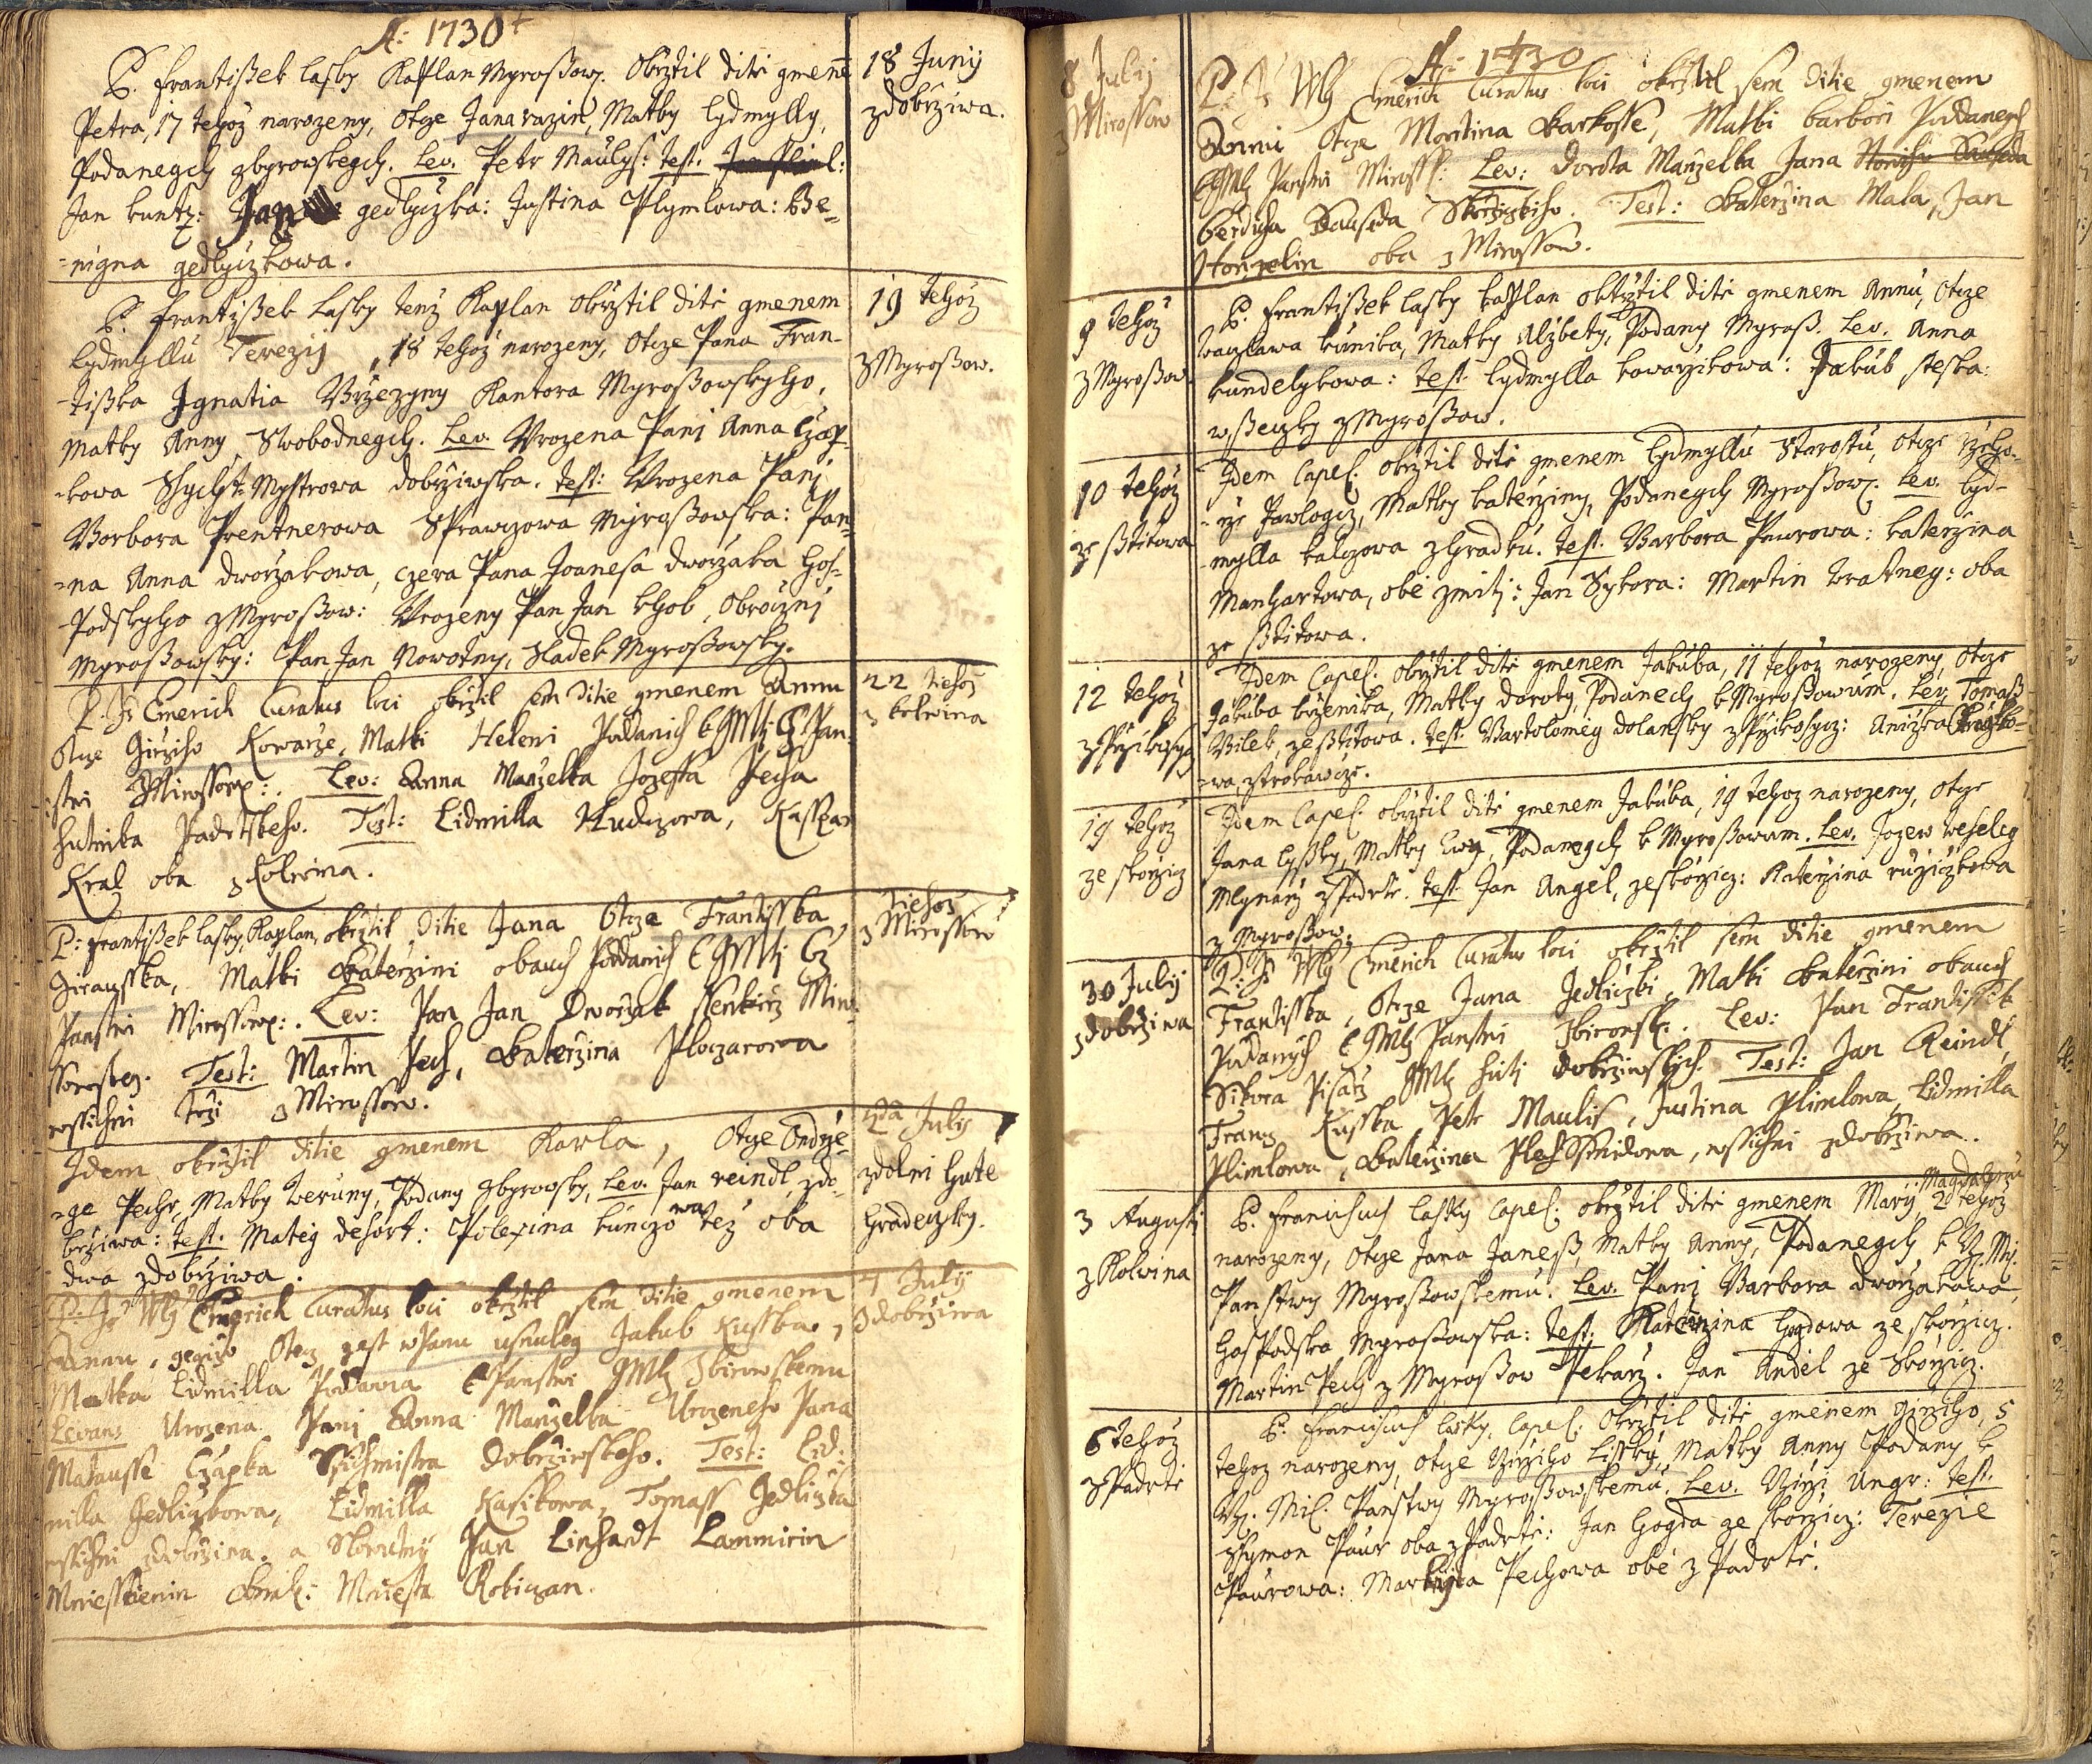 A: 1730
P. Frantißek Lasky Kapllan Myroßow. Okrztil ditě gmenē
Petra, 17 tehoz narozeny, Otze Jana razim, Matky Lydmylly,
Podanegch zbyrowskegch. Lev. Petr Maulys: test.
Jan Kuntz: Jan gedlyczka: Justina Plymlowa: Be-
-nigna gedlyczkowa.
18 Junij
z dobrziwa.
P. Frantyßek Lasky tenz Kaplan Okrztil ditě gmenem
Lydmyllu Terezij, 18 tehoz narozeny, Otcze Pana Fran-
-tißka Ignatia Brzezyny Kantora Myroßowskyho,
Matky Anny, Swobodnegch. Lev. Urozena Pani Anna Czap-
-kowa Shycht-Mystrowa dobrziwska. test: Urozena Pani
Borbora Prentnerowa Sprawczowa Myroßowska: Pan-
-na Anna dworzakowa, czera Pana Joanesa dworzaka Hos-
Podskyho z Myroßow: Urozeny Pan Jan Khob, Obroczni
Myroßowsky: Pan Jan Nowotny, Sladek Myroßowsky.
19 tehoz
z Myroßow.
P. Emerich Curatus loci okrztil sem ditie gmenem Annu
otcze Girziho Kowarze, Matki Heleni Poddanich
stwi Mirossow: Lev: Anna Manzelka Jozeffa Pecha
hutnika Padrtskeho. Test: Lidmilla Hudczowa, Kasspar
Kral oba z Kolwina.
22 tiehoz
z kolwina
P: Frantißek Lasky, Kaplan, okrztil ditie Jana Otcze Frantisska
Girausska, Matki Katerzini obauch Poddanich
Panstwi Mirossow: Lev: Pan Jan Dworzak Ssenkirz Miro-
ssowskeg. Test: Martin Pech, Katerzina Ploczarowa
wssichni trzi z Mirossow.
tiehoz
z Mirossow
Idem okrztil ditie gmenem Karla, Otcze Ondrze-
-ge Pechr, Matky Weruny, Podany zbyrowsky, Lev. Jan reindl, zdo-
brziwa: test. Mateg dehort: Polexina kunczowa tez oba
dwa z dobrziwa.
2da Julij
z dolni Hute
Hradeczky.
P. Emerich Curatus loci okrztil sem ditie gmenem
Annu, gegizto Otecz gest w Panu usnuleg Jakub Kusska,
Matka Lidmilla Poddana k Panstwi Zbirowskemu
Levans Urozena Pani Anna Manzelka Urozeneho Pana
Matausse Czapka Ssichmistra Dobrziwskeho. Test: Lid-
milla Jedliczkowa, Lidmilla Kasikowa, Tomass Jedliczka
wssichni z dobrziwa. a Slowutny Pan Linhardt Lammirin
Miesstienin Miesta Rokiczan.
4 Julij
z dobrziwa
A: 1730
P. Emerich Curatus loci okrztil sem ditie gmenem
Annu Otcze Martina Barkosse, Matki Barbori Poddanych
Panstwi Miross: Lev: Dorota Manzelka Jana
Berducha Sauseda Skorziczkiho. Test: Katerzina Mala, Jan
Honzelin oba z Mirossow.
8 Julij
z Mirossow
P. Frantißek Lasky kapllan oktrztil ditě gmenem Annu, Otcze
Waczlawa kunika, Matky Alzbety, Podany Myroß. Lev. Anna
kundelykowa: test. Lydmylla kowarzikowa: Jakub steska:
wsseczky z Myroßow.
9 tehoz
z Myroßow
Idem Capel. okrztil ditě gmenem Lydmyllu Starostu, otcze rzeho-
-rze Pawlogcz, Matky katerziny, Podanegch Myroßow. Lev. Lyd-
-mylla kalczowa z Hradku. test. Barbora Paurowa: katerzina
Manhartowa, obě zmiti: Jan Sykora: Martin wratneg: oba
ze sstitowa.
10 tehoz
ze sstitowa
Idem Capel. okrztil ditě gmenem Jakuba, 11 tehoz narozeny, otcze
Jakuba krzenika, Matky doroty, Podanech k Myroßowum. Lev. Tomaß
Bilek, ze sstitowa. test. Bartolomieg dolansky z Przikosycz: Aniczka
-wa, z strokawcze.
12 tehoz
z Przikosycz
Idem Capel. okrztil ditě gmenem Jakuba, 19 tehoz narozeny, otcze
Jana Lyßky, Matky Ewy, Podanegch k Myroßowum. Lev. Jozew Weseleg
Mlynarz z Padrtě. test. Jan Angel, ze skorzicz: Katerzina ruziczkowa
z Myroßow:
19 tehoz
ze skorzicz
P. Emerich Curatus loci okrztil sem ditie gmenem
Frantisska, Otcze Jana Jedliczki, Matki Katerzini obauch
Puddanych Panstwi Zbirowsk. Lev: Pan Frantissek
Sikora Pisarz Huti Dobrziwskych. Test: Jan Reindl,
Frantz Kusska Petr Maulis, Justina Plimlowa, Lidmilla
Plimlowa, Katerzina Plechssmidowa, wssichni z dobrziwa.
30 Julij
z dobrziwa
P. Franciscus Lasky Capel. okrztil ditě gmenem Marij Magdalenu, 2 tehoz
narozeny, otcze Jana Janeß, Matky Anny, Podanegch k Wy. Mi.
Panstwy Myroßowskemu. Lev. Pani Barbora dworzakowa,
HosPodska Myroßowska: test. Katerzina Hogdowa ze skorzicz.
Martin Pech z Myroßow Pekarz. Jan Anděl ze Skorzicz.
3 Augusti
z Kolwina
P. Franciscus Lasky Capel. okrztil ditě gmenem Girziho, 5
tehoz narozeny, otcze Girziho Lissky, Matky Anny Podany k
Wy. Mil. Panstwy Myroßowskemu. Lev. Girzi Ungr: test.
Szymon Paur oba z Padrtě: Jan Hogda ze skorzicz: Terezie
Paurowa: Markyta Pechowa obě z Padrtě.
6 tehoz
z Padrtě